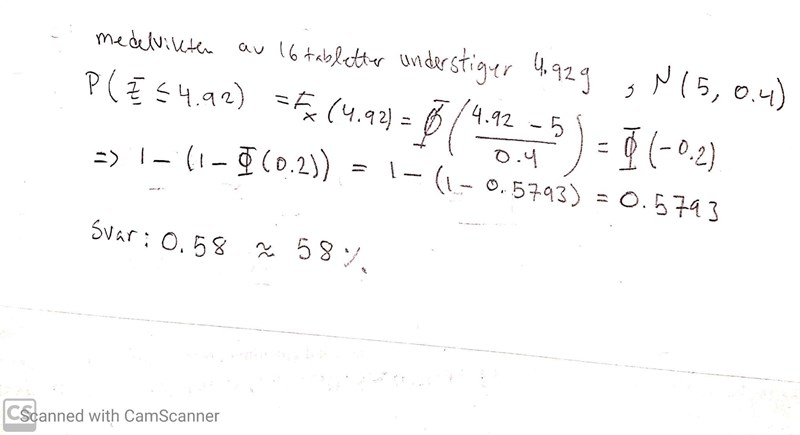 medelvikten av 16 tabletter understiger 4.92g , N(5, 0.4)
P(Ξ ≤ 4.92) = Fx(4.92) = Φ((4.92 - 5)/0.4) = Φ(-0.2)
=> 1 - (1 - Φ(0.2)) = 1 - (1 - 0.5793) = 0.5793
Svar: 0.58 ≈ 58%
CS Scanned with CamScanner